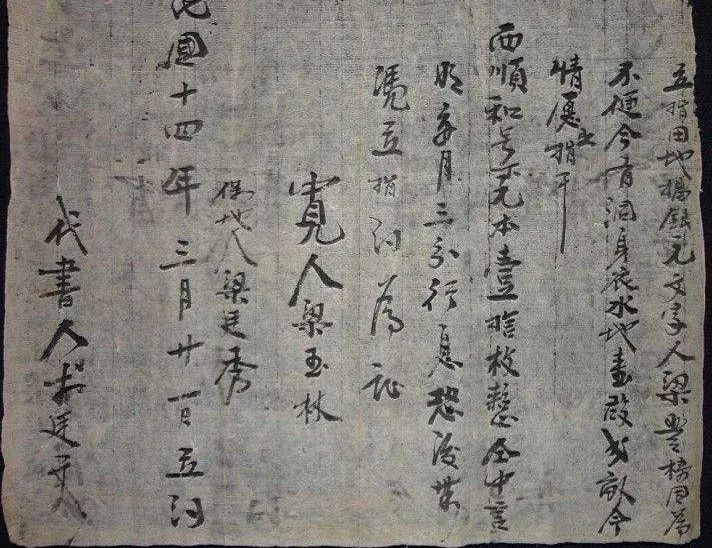 立指田地揭銀元文字人梁豐梅因為
不便今有洄身衣水地壹段弍畝今
情愿出指于
西順和号大元本壹拾枚整仝中言
明每月三分行息恐後無
憑立指約為証
寛人梁玉林
保地人梁廷秀
民國十四年三月廿一日立約
代書人梁廷